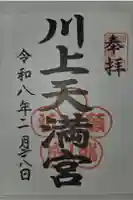 奉拝
川上天満宮
令和八年二月廿八日